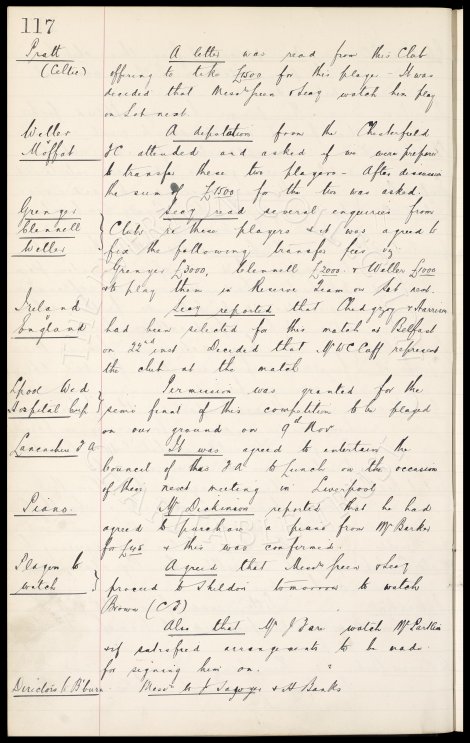 117
Pratt
(Celtic)
A letter was read from this Club
offering to take £1500 for this player - It was
decided that Messrs Green & Leay watch him play
on Sat next.
Weller
&
Moffat
A deputation from the Chesterfield
FC attended and asked if we were prepared
to transfer these two players - After discussion
the sum of £1500 for the two was asked.
Grenyer
Clennell
Weller
Leay read several enquiries from
Clubs re these players & it was agreed to
fix the following transfer fees viz
Grenyer £3000, Clennell £2000 & Weller £1000
& to play them in Reserve Team on Sat next.
Ireland
v
England
Leay reported that Chedgzoy & Harrison
had been selected for this match at Belfast
on 22nd inst. Decided that Mr W C Cuff represent
the club at the match
Lpool Wed
Hospital Cup
Permission was granted for the
semi final of this competition to be played
on our ground on 9th Nov
Lancashire F A
It was agreed to entertain the
Council of this F A to Lunch on the occasion
of their next meeting in Liverpool
Piano
Mr Dickinson reported that he had
agreed to purchase a piano from Mr Barker
for £45 & this was confirmed.
Players to
watch
Agreed that Messrs Green & Leay
proceed to Shildon tomorrow to watch
Brown (CF)
Also that Mr J Fare watch
& if satisfied arrangements to be made
for signing him on.
Directors to B'burn.
Messrs J Sawyer & A Banks